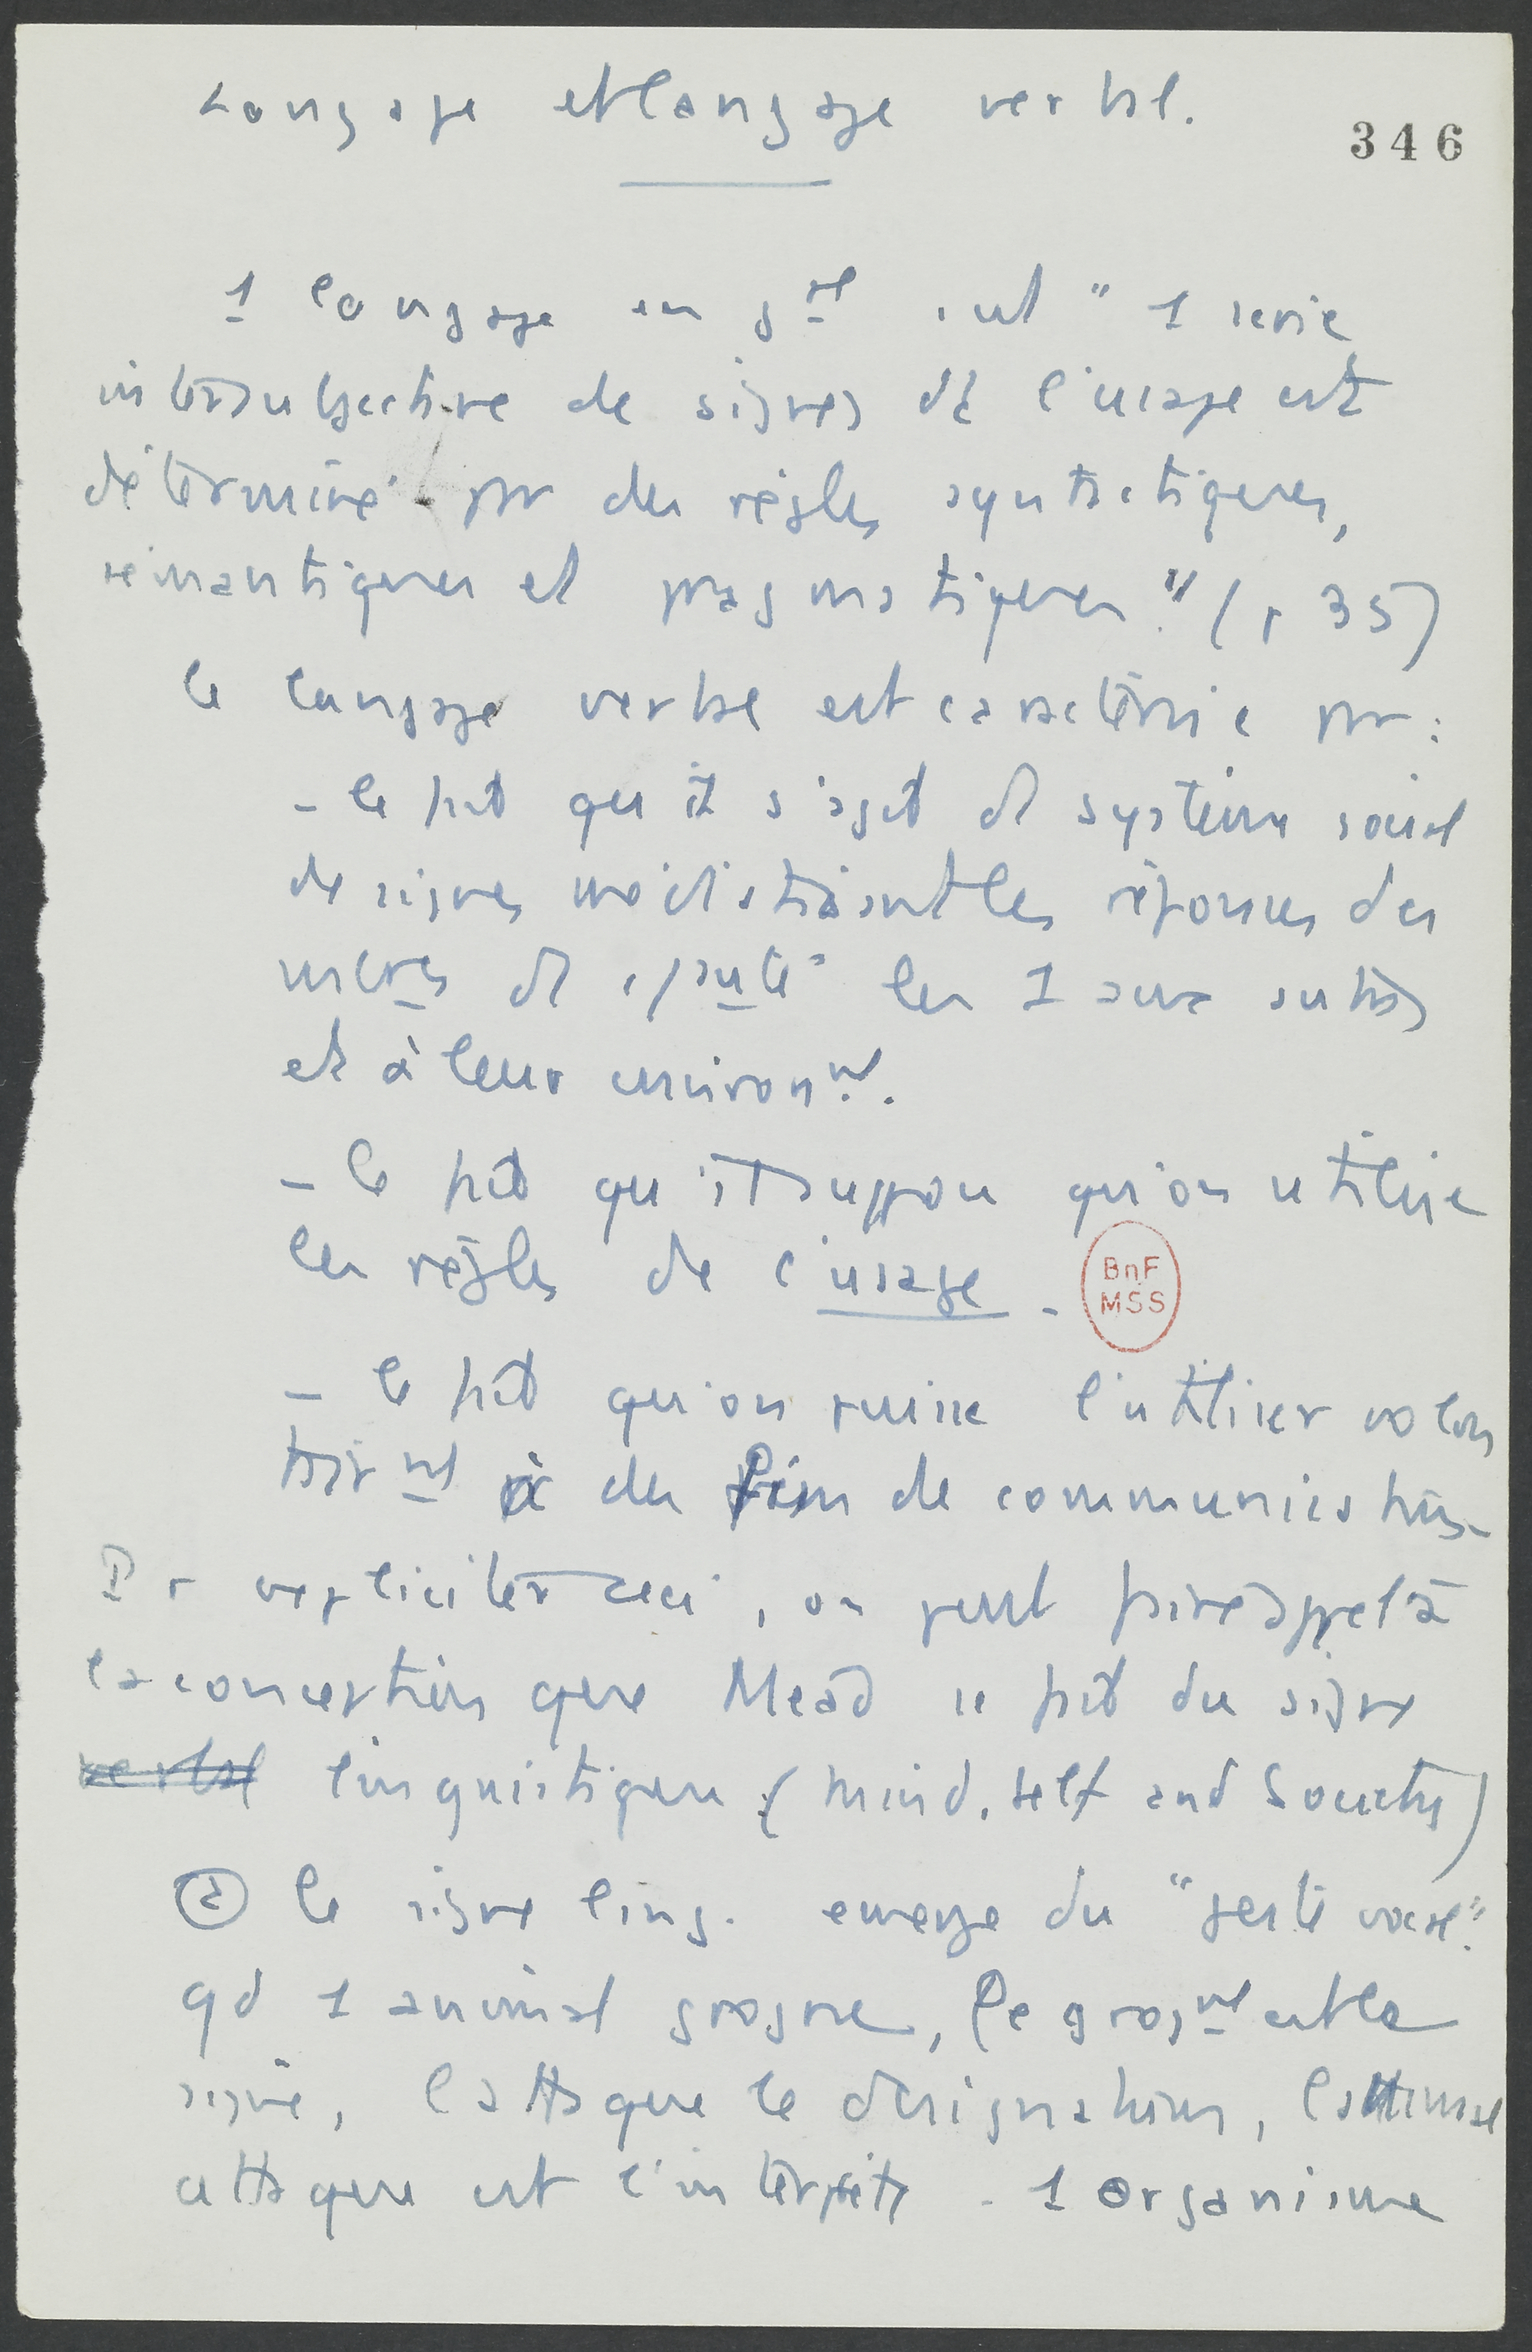 Langage et langage verbal.
346
1 langage en gal est " 1 série
intersubjective de signes dt l'usage est
déterminé par des règles syntactiques,
sémantiques et pragmatiques." (p 35)
le langage verbal est caractérisé par :
- le fait qu'il s'agit d'1 système social
de signes médiatisant les réponses des
membres d'1 cté les 1 aux autres
et à leur environnt.
- le fait qu'il suppose qu'on utilise
les règles de l'usage.
BnF
MSS
- le fait qu'on puisse l'utiliser volon
tairnt à des fins de communication.
Pr expliciter ceci, on peut faire appel à
la conception que Mead se fait du signe
verbal linguistique (Mind, self and Society)
② le signe ling. emerge du "geste vocal".
qd 1 animal grogne, le grognt est le
signe, l'attaque le designatum, l'animal
attaqué est l'interprète. 1 organisme